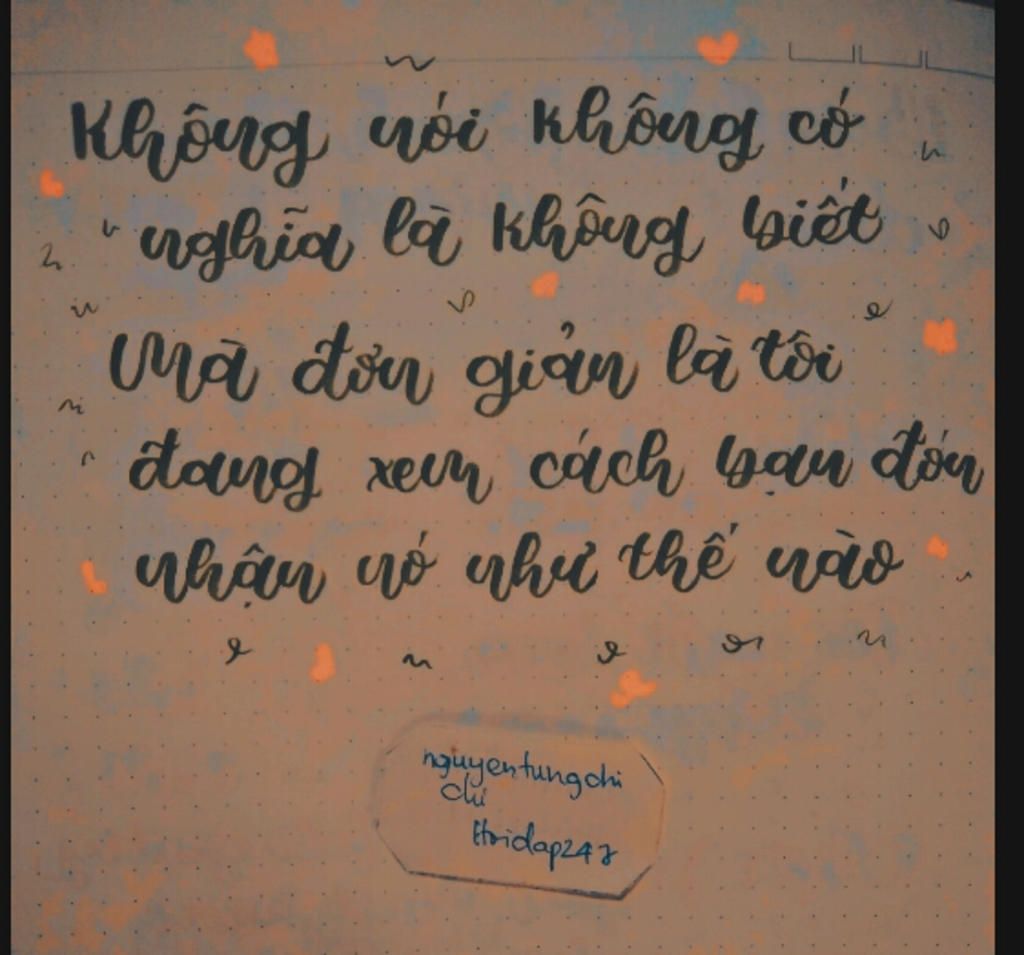 Không nói không có
nghĩa là không biết
Mà đơn giản là tôi
đang xem cách bạn đón
nhận nó như thế nào
nguyentungchi
chi
Hoidap247